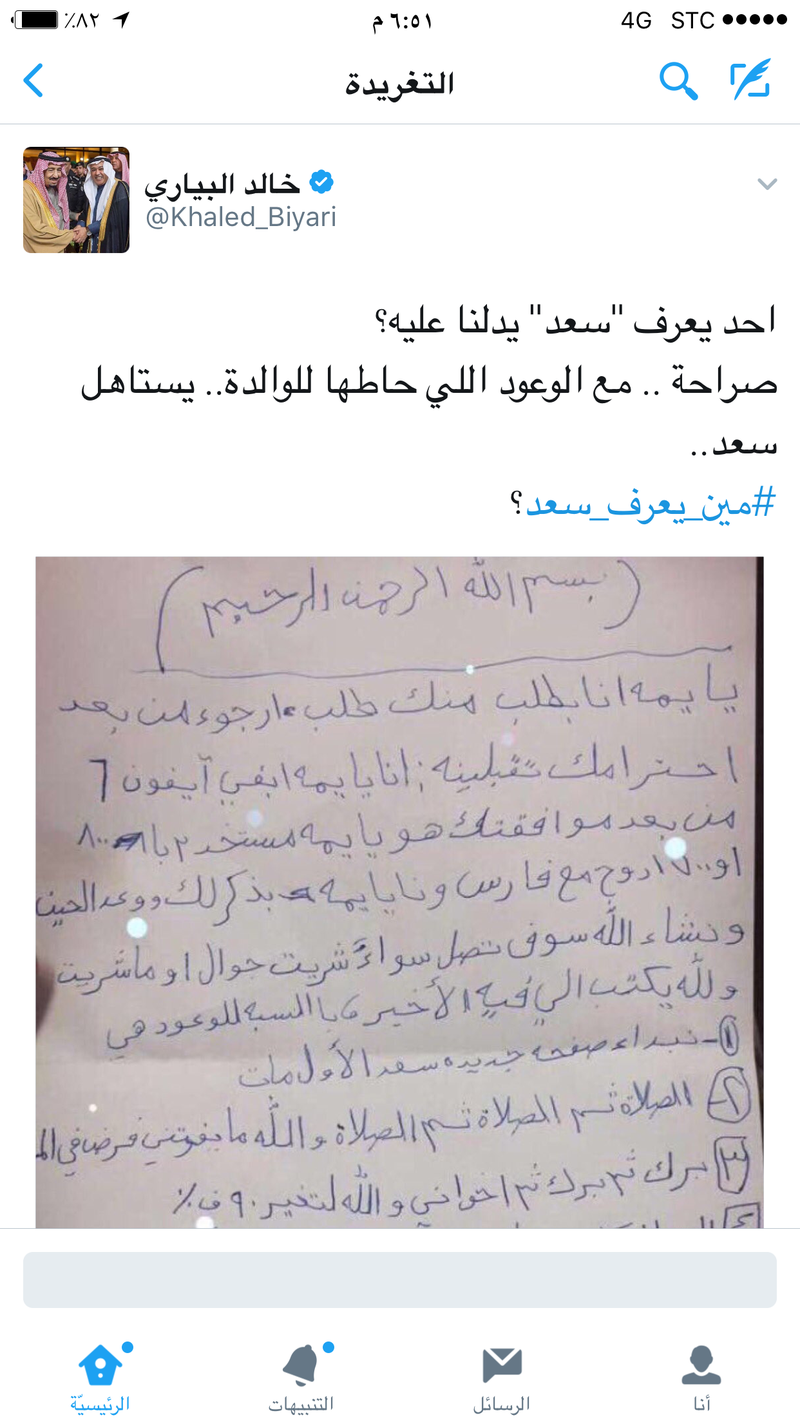 ٪٨٢
٦:٥١ م
4G STC
التغريدة
خالد البياري
@Khaled_Biyari
احد يعرف "سعد" يدلنا عليه؟
صراحة .. مع الوعود اللي حاطها للوالدة.. يستاهل
سعد..
#مين_يعرف_سعد؟
(بسم الله الرحمن الرحيم)
يا يمه انا بطلب منك طلب ارجوء من بعد
احترامك تقبلينه; انا يا يمه ابغي آيفون 6
من بعد موافقتك هو يا يمه مستخدم با ٨٠٠
او ٧٠٠ اروح مع فارس ونا يا يمه بذكرلك ووعد الحين
ونشاء الله سوف تصل سواءً شريت جوال او ماشريت
ولله يكتب الي فيه الأخير با السبه للوعود هي
١- نبداء صفحه جديده سعد الأول مات
٢- الصلاة ثم الصلاة ثم الصلاة والله ما يفوتني فرض في الم
٣ برك ثم برك ثم اخواني والله لتغير ٩٠ ف٪
٤
الرئيسيّة
التنبيهات
الرسائل
أنا